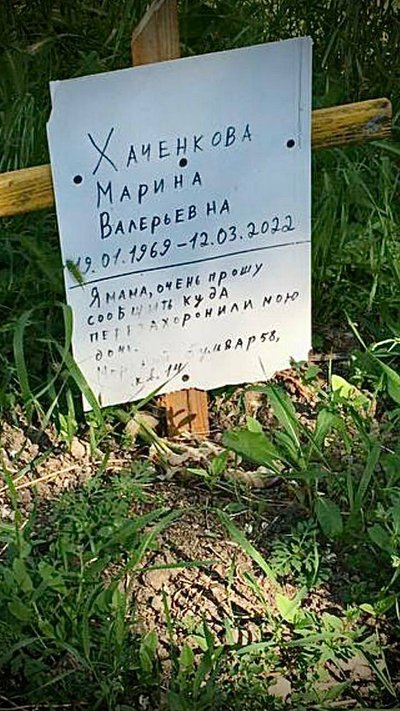 Хаченкова
Марина
Валерьевна
19.01.1969 – 12.03.2022
Я мама, очень прошу
сообщить куда
перезахоронили мою
дочь.
бульвар 58,
кв. 14